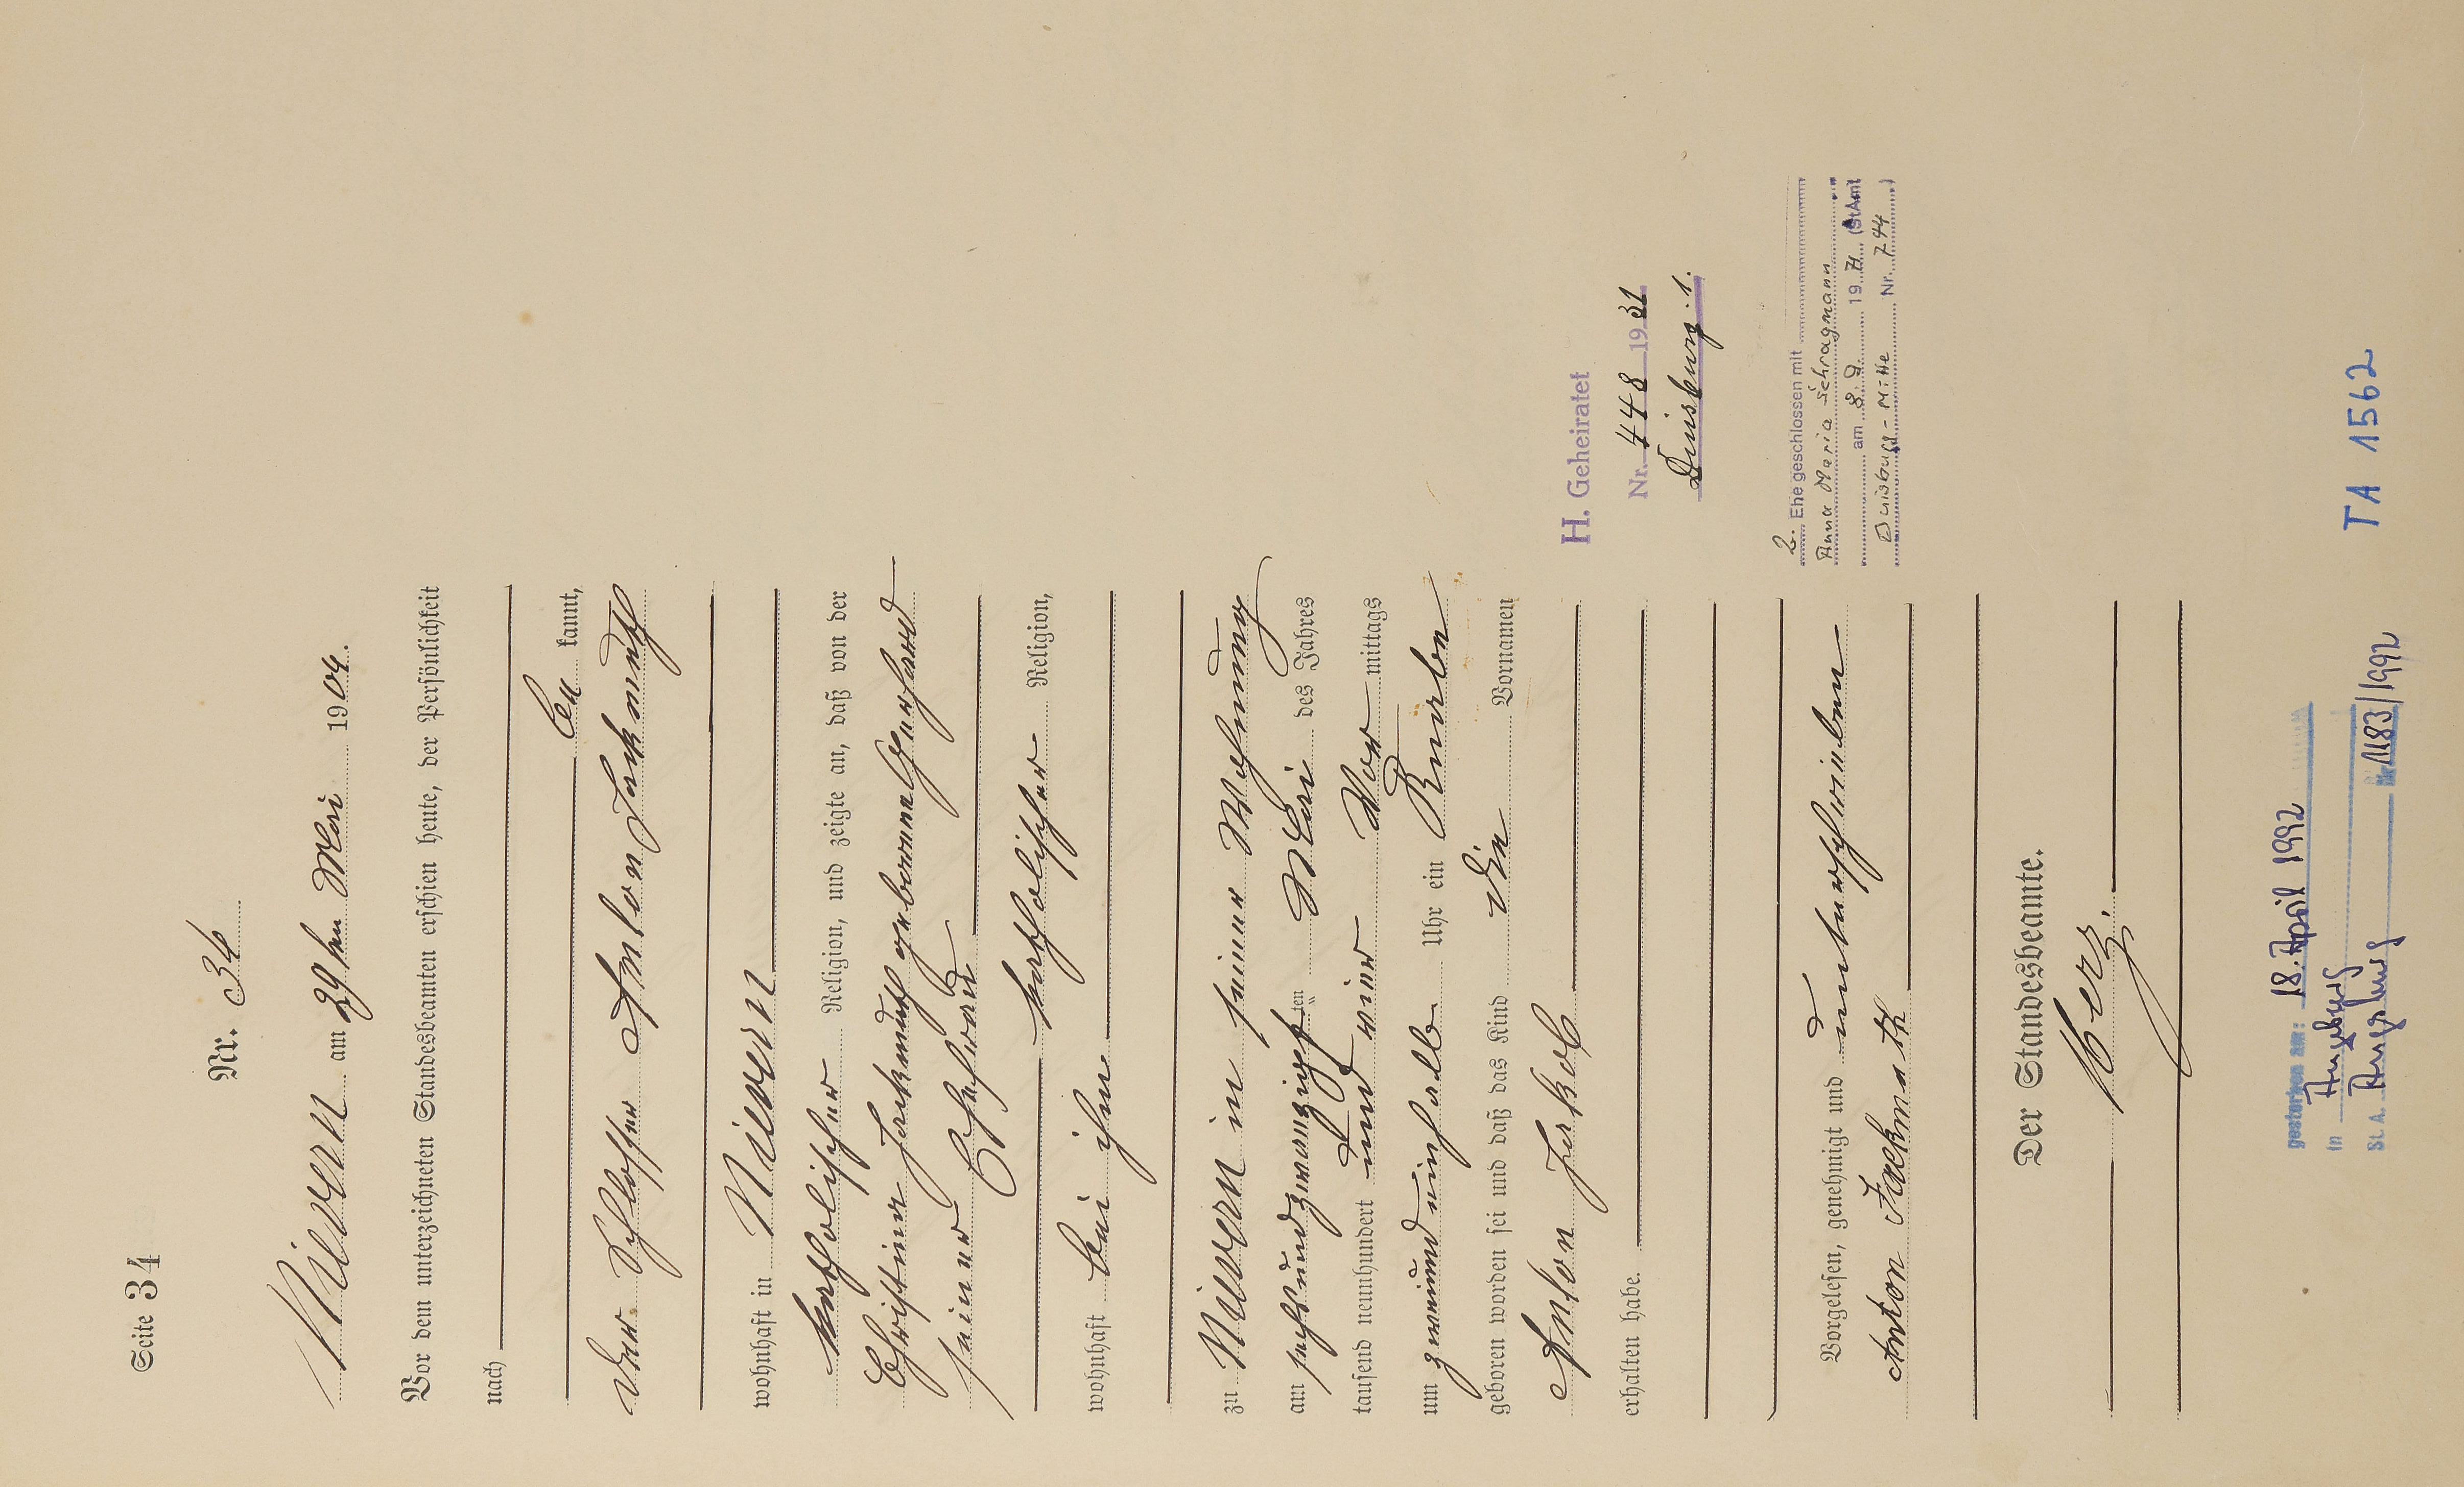 Seite 34
Nr. 34
Nievern am 29ten Mai 1904.
Vor dem unterzeichneten Standesbeamten erschien heute, der Persönlichkeit
nach
be kannt,
der Schlosser Anton Jackmuth
wohnhaft in Nievern
katholischer Religion, und zeigte an, daß von der
Christina Jackmuth geborenen Gerhard
seiner Ehefrau
katholischer Religion,
wohnhaft bei ihm
zu Nievern in seiner Wohnung
am sechsundzwanzigsten Mai des Jahres
tausend neunhundert und vier Vor mittags
um zweiundeinhalb Uhr ein Knabe
geboren worden sei und daß das Kind die Vornamen
Anton Jakob
erhalten habe.
Vorgelesen, genehmigt und unterschrieben
Anton Jackmuth
Der Standesbeamte.
Herz.
H. Geheiratet
Nr. 448 1931
Duisburg. 1.
2. Ehe geschlossen mit
Anna Maria Schragmann
am 8.9. 1971 (StAmt
Duisburg-Mitte Nr. 794)
gestorben am: 18. April 1992
in Augsburg
St. A. Augsburg Nr. 1183/1992
TA 1562